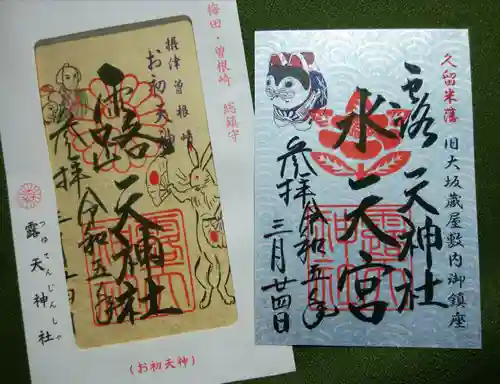 梅田・曽根崎 総鎮守
摂津曽根崎
お初天神
露天神社
参拝 令和五年
露天神社
つゆてんじんしゃ
(お初天神)
久留米藩
旧大坂蔵屋敷内御鎮座
露天神社
水天宮
参拝 令和五年
三月廿四日